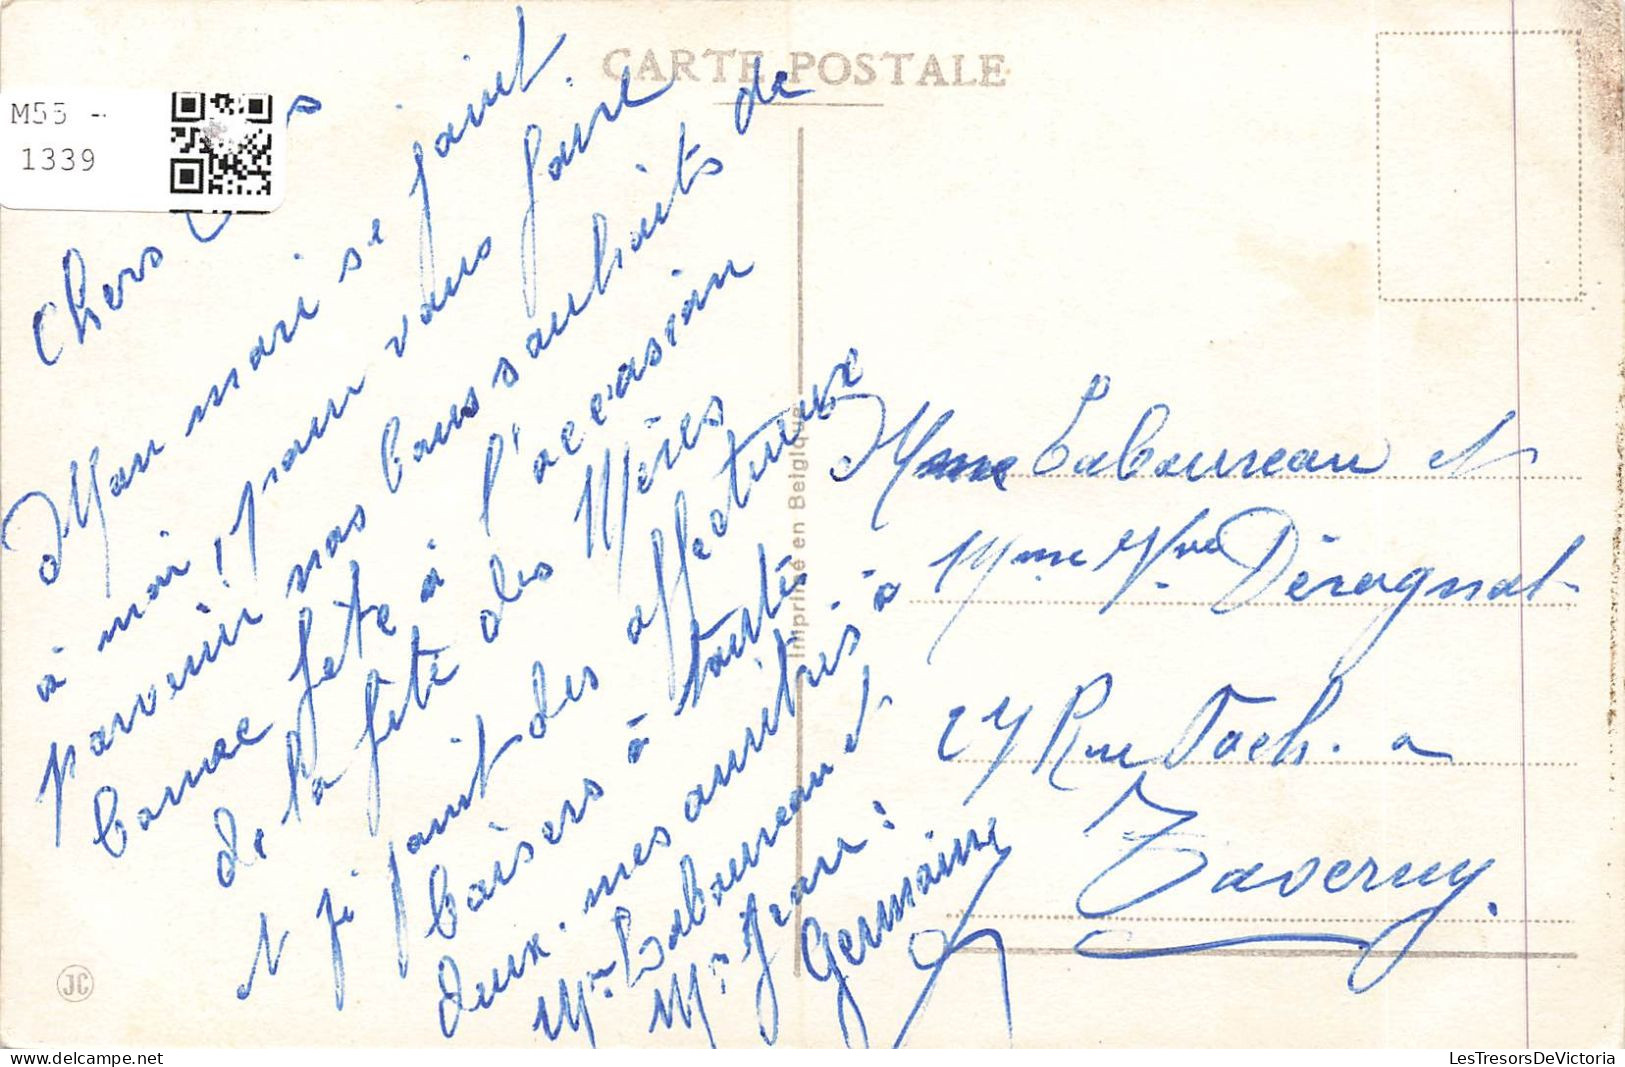 CARTE POSTALE
M55 -
1339
Chers
Mon mari se joint
à moi, pour vous faire
parvenir nos bons souhaits de
bonne fête à l'occasion
de la fête des Mères
et j'y joint des affectueux
baisers à toutes
deux. mes amitiés à
Mr Laboureau et
Mr Jean :
Germaine
Imprimé en Belgique
Mme Laboureau et
Mme Vve Dérognat
27 Rue Foch. a
Taverny.
JC
LesTresorsDeVictoria